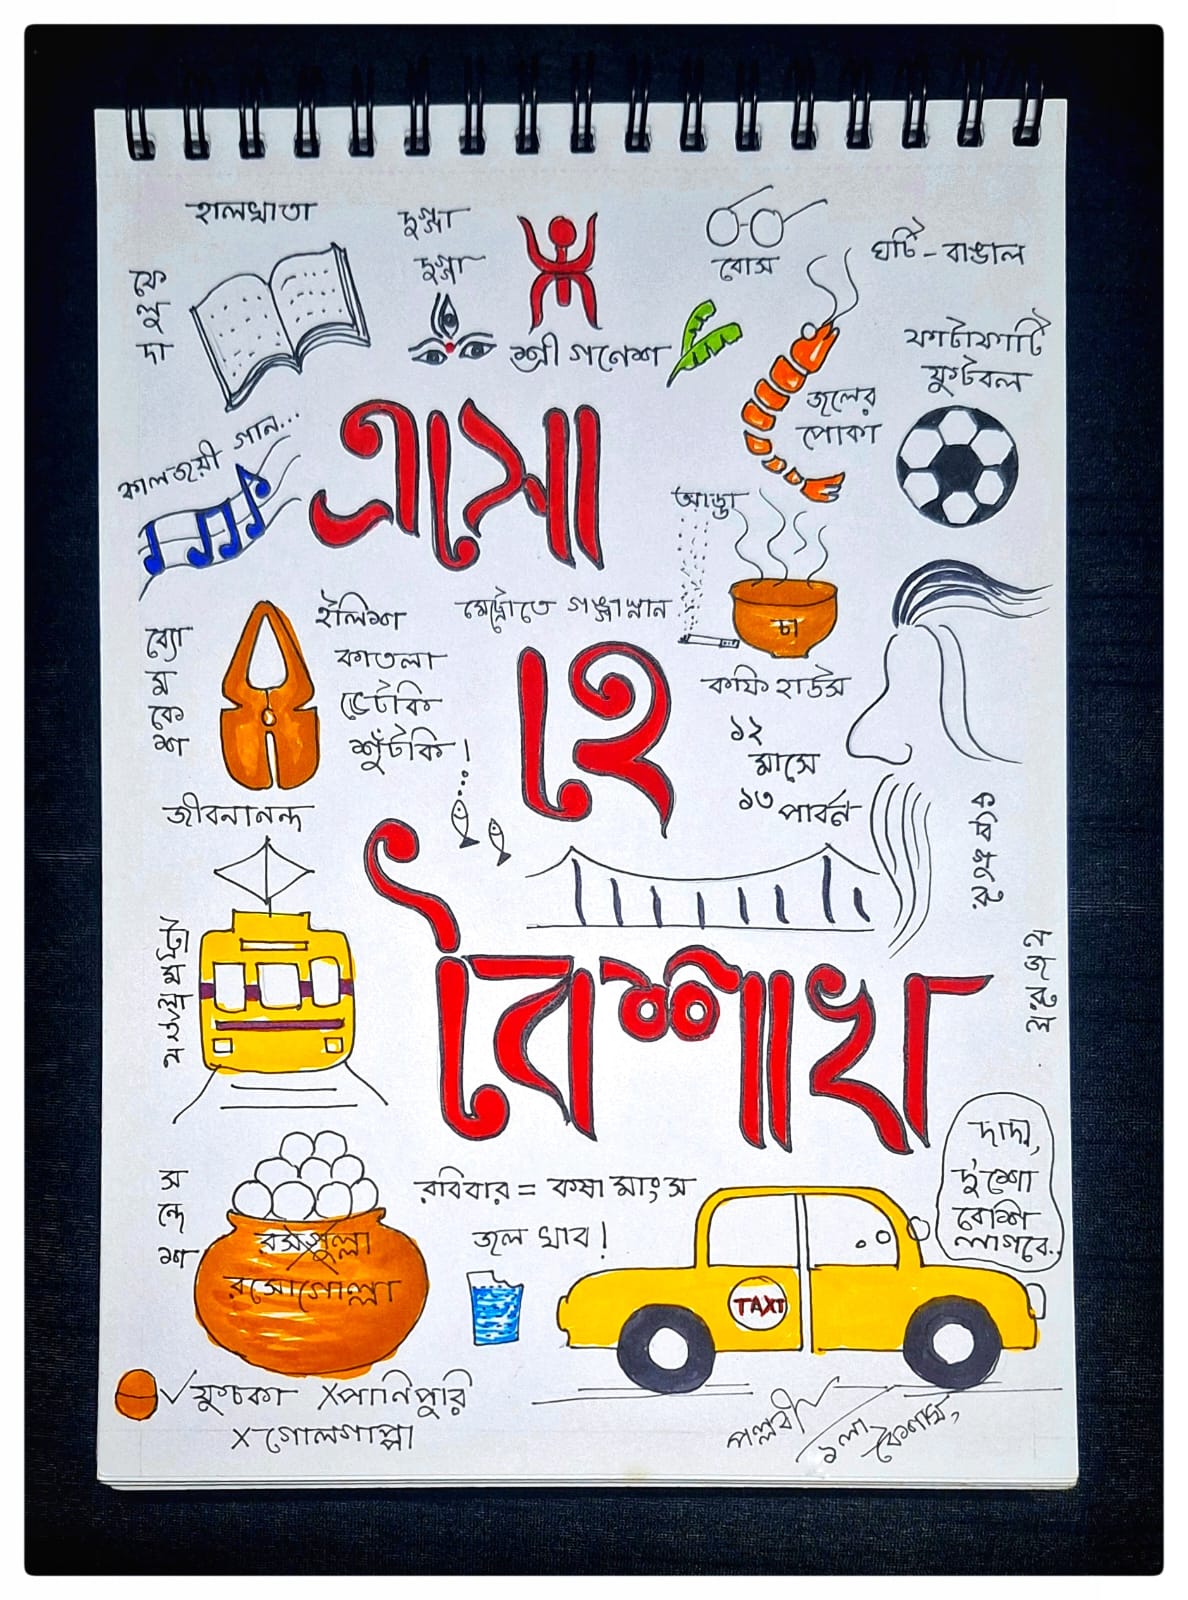 হালখাতা
দুগ্গা
দুগ্গা
ফেলুদা
শ্রী গণেশ
বোস
ঘটি - বাঙাল
জলের
পোকা
ফাটাফাটি
ফুটবল
কালজয়ী গান...
এসো
আড্ডা
চা
ব্যোমকেশ
ইলিশ
কাতলা
ভেটকি
শুঁটকি!
মেট্রোতে গঙ্গাস্নান
কফি হাউস
হে
১২
মাসে
১৩ পার্বন
কবিগুরু
জীবনানন্দ
ট্রামলাইন
বৈশাখ
নজরুল
সন্দেশ
রসগুল্লা
রসোগোল্লা
রবিবার = কষা মাংস
জল খাব!
দাদা,
দু'শো
বেশি
লাগবে..
TAXI
✓ফুচকা ×পানিপুরি
×গোলগাপ্পা
পল্লবী
১লা বৈশাখ,